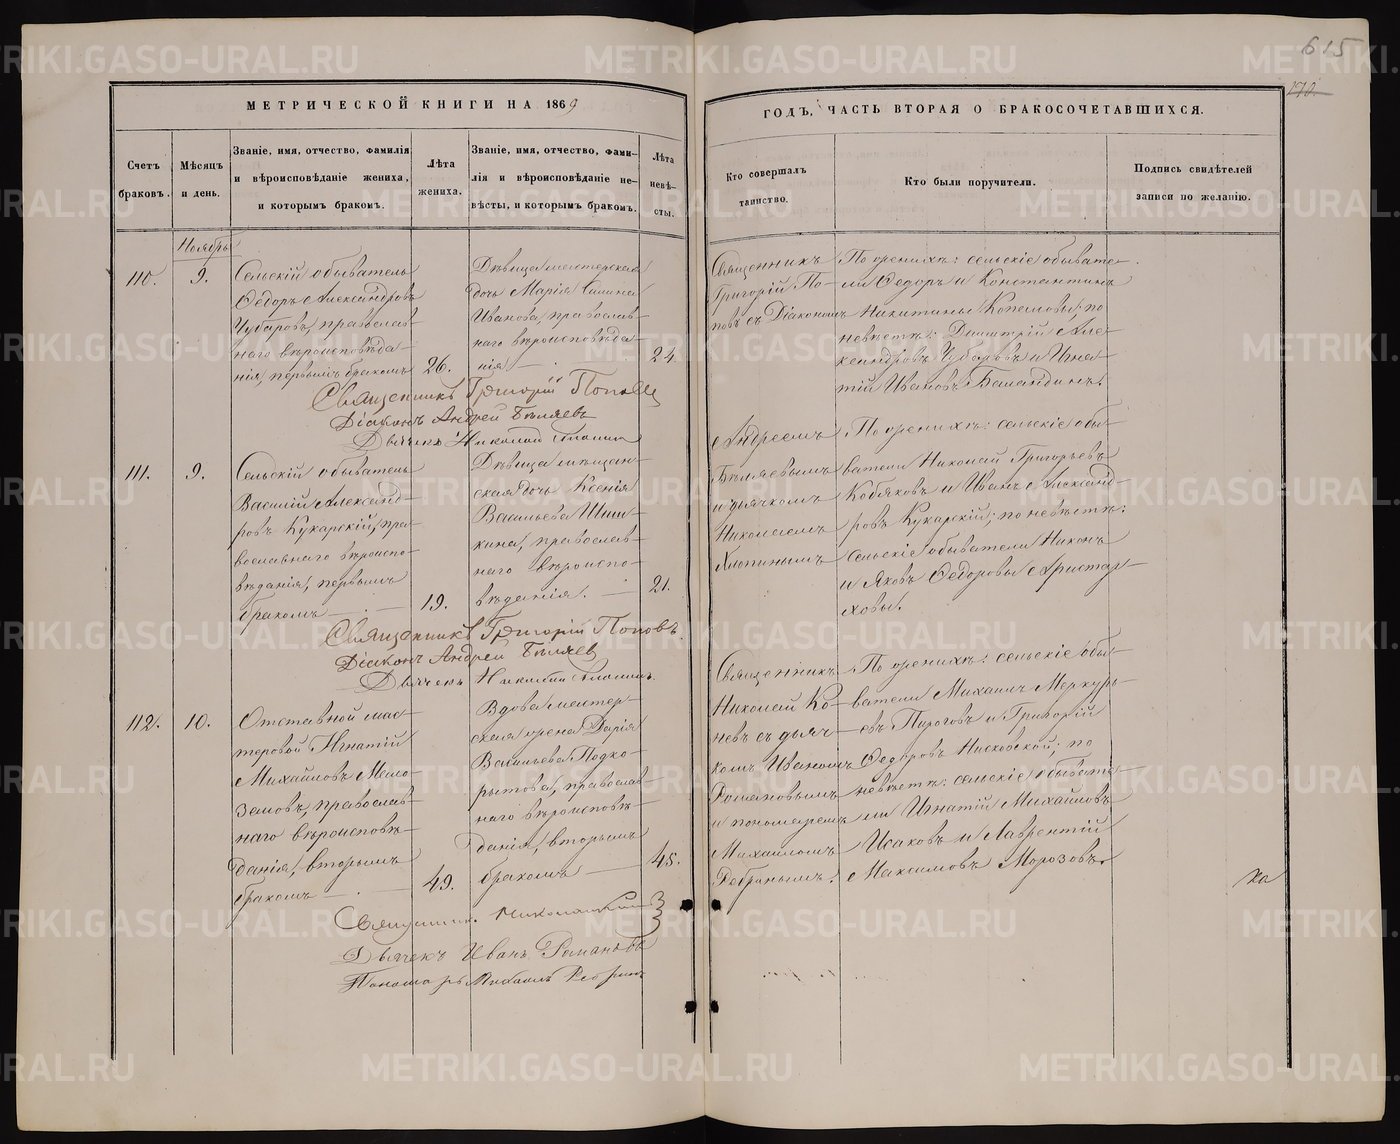 615
170.
МЕТРИЧЕСКОЙ КНИГИ НА 1869
ГОДЪ, ЧАСТЬ ВТОРАЯ О БРАКОСОЧЕТАВШИХСЯ.
Счетъ браковъ.
Мѣсяцъ и день.
Званіе, имя, отчество, фамилія
и вѣроисповѣданіе жениха,
и которымъ бракомъ.
Лѣта жениха.
Званіе, имя, отчество, фами-
лія и вѣроисповѣданіе не-
вѣсты, и которымъ бракомъ.
Лѣта невѣ-
сты.
Кто совершалъ
таинство.
Кто были поручители.
Подпись свидѣтелей
записи по желанію.
Ноябрь
110.
9.
Сельскій обыватель
Ѳедоръ Александровъ
Чубаровъ, православ-
наго вѣроисповѣда-
нія, первымъ бракомъ
26.
Дѣвица мастерская
дочь Марія
Иванова, православ-
наго вѣроисповѣда
нія
24.
Священникъ
Григорій По-
повъ съ Діакономъ
По женихѣ: сельскіе обывате-
ли Ѳедоръ и Константинъ
Никитины Копыловы; по
невѣстѣ: Дмитрій Але-
ксандровъ Чубаровъ и Игна-
тій Ивановъ
Священникъ Григорій Поповъ
Діаконъ Андрей Бѣляевъ
Дьячекъ Николай
111.
9.
Сельскій обыватель
Василій Александ-
ровъ Кукарскій, пра-
вославнаго вѣроиспо-
вѣданія, первымъ
бракомъ
19.
Дѣвица мѣщан-
ская дочь Ксенія
Васильева Шиш-
кина, православ-
наго вѣроиспо-
вѣданія.
21.
Андреемъ
Бѣляевымъ
и дьячкомъ
Николаемъ
По женихѣ: сельскіе обы-
ватели Николай Григорьевъ
Кобяковъ и Иванъ Александ-
ровъ Кукарскій; по невѣстѣ:
сельскіе обыватели Никонъ
и Яковъ Ѳедоровы Аристар-
ховы.
Священникъ Григорій Поповъ
Діаконъ Андрей Бѣляев
Дьячекъ Николай
112.
10.
Отставной мас-
теровой Игнатій
Михайловъ Мало-
земовъ, православ-
наго вѣроисповѣ-
данія, вторымъ
бракомъ
49.
Вдова мастер-
ская жена Дарія
Васильева Подко-
рытова, православ-
наго вѣроисповѣ-
данія, вторымъ
бракомъ
45.
Священникъ
Николай Ко-
невъ съ дьяч-
комъ Иваномъ
Романовымъ
и пономаремъ
Михаиломъ
Ребринымъ.
По женихѣ: сельскіе обы-
ватели Михаилъ Меркурь-
евъ Пироговъ и Григорій
Ѳедоровъ по
невѣстѣ: сельскіе обывате-
ли Игнатій Михайловъ
Исаковъ и Лаврентій
Максимовъ Морозовъ.
ха
Священникъ Николай
Дьячекъ Иванъ Романовъ
Пономарь Михаилъ Ребринъ
METRIKI.GASO-URAL.RU